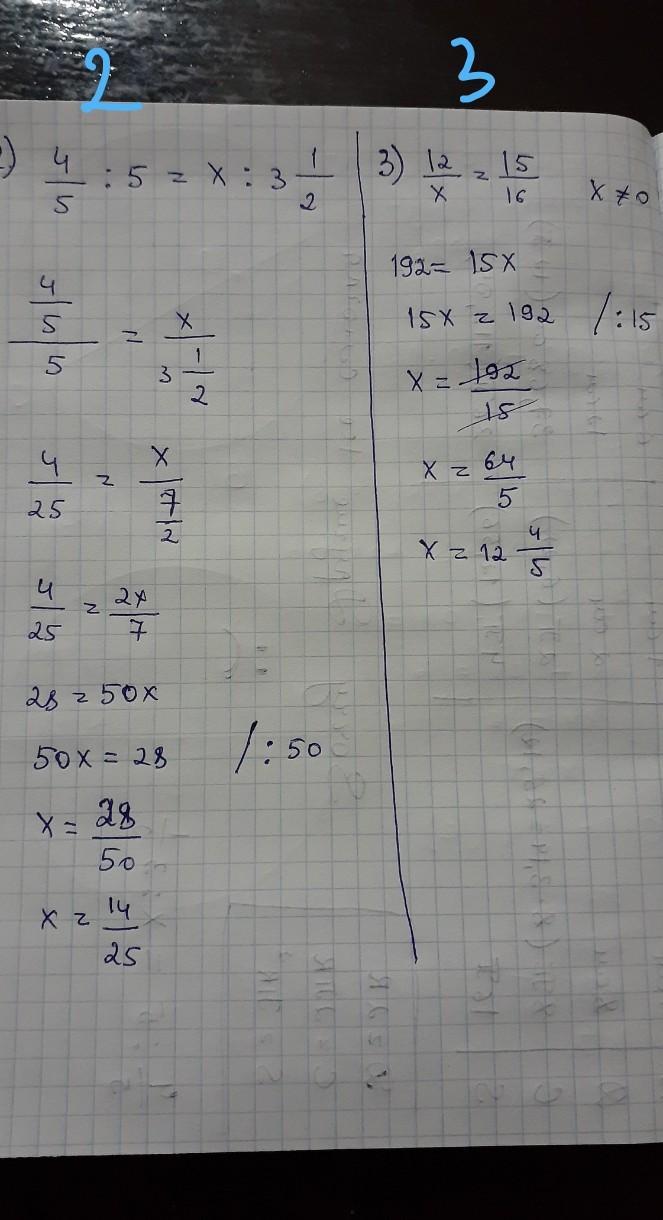 2
3
) 4/5 : 5 = x : 3 1/2
4/5/5 = x/3 1/2
4/25 = x/7/2
4/25 = 2x/7
28 = 50x
50x = 28 /: 50
x = 28/50
x = 14/25
3) 12/x = 15/16 x ≠ 0
192 = 15x
15x = 192 /: 15
x = 192/15
x = 64/5
x = 12 4/5